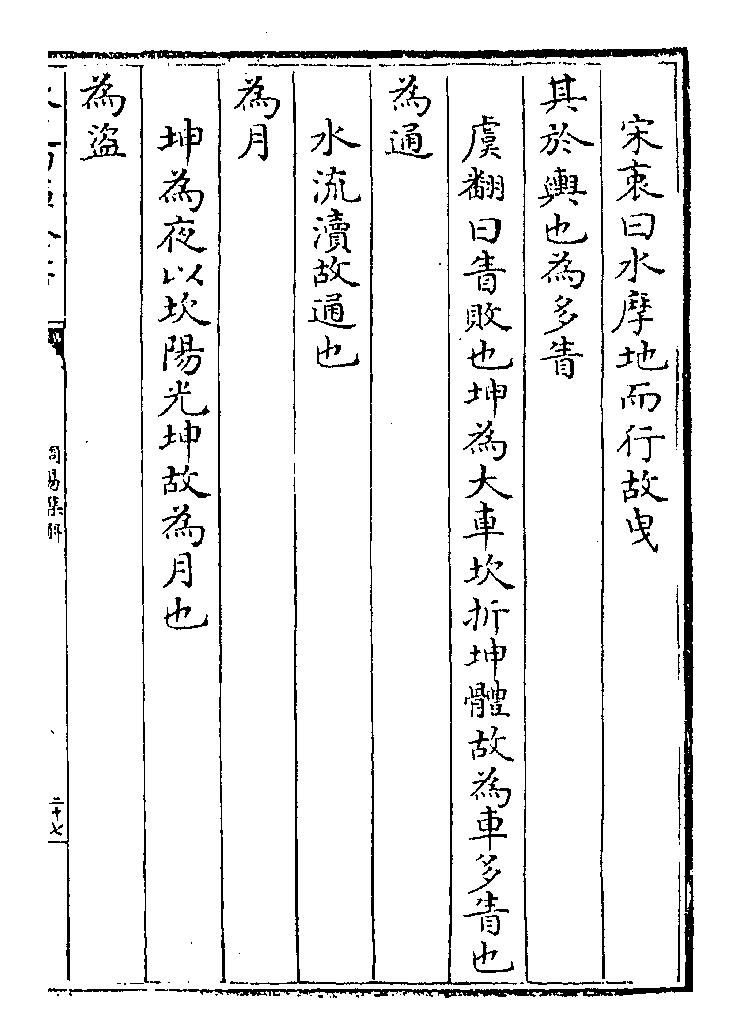 宋衷曰水摩地而行故曵
其於輿也為多眚
虞翻曰眚敗也坤為大車坎折坤體故為車多眚也
為通
水流瀆故通也
為月
坤為夜以坎陽光坤故為月也
為盜
周易集解
二十七